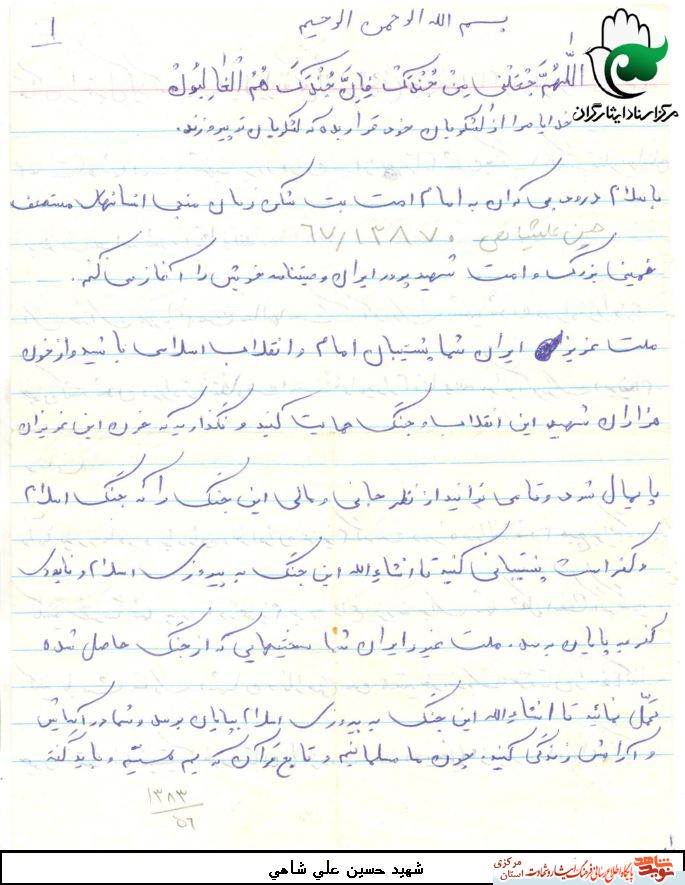 بسم الله الرحمن الرحیم
۱
اللّهُمَّ جْعَلْنی مِنْ جُنْدِکْ فَاِنَّ جُنْدَکَ هُمُ الْغٰالِبُونْ
خدایا مرا از لشکریان خود قرار بده که لشکریان تو پیروزند.
مرکز اسناد ایثارگران
با سلام و درود بی کران به امام امت بت شکن زمان منجی انسانهای مستضعف
حسین علیشاهی ۶۷/۱۳۸۷۰
خمینی بزرگ و امت شهید پرور ایران وصیتنامه خویش را آغاز می کنم.
ملت عزیز ایران شما پشتیبان امام و انقلاب اسلامی باشید و از خون
هزاران شهید این انقلاب و جنگ حمایت کنید و نگذارید که خون این عزیزان
پایمال شود و تا می توانید از نظر جانی و مالی این جنگ را که جنگ اسلام
و کفر است پشتیبانی کنید تا انشاءالله این جنگ به پیروزی اسلام و نابودی
کفر به پایان برسد. ملت غیور ایران شما سختیهایی که از جنگ حاصل شده
تحمّل نمائید تا انشاءالله این جنگ به پیروزی اسلام بپایان برسد و شما در آسایش
و آرامش زندگی کنید. چون ما مسلمانیم و تابع قرآن کریم هستیم و باید گفته
۱۳۸۳
۵۶
۱
شهيد حسين علي شاهي
نوید شاهد
پایگاه اطلاع رسانی فرهنگ ایثار و شهادت
استان مرکزی